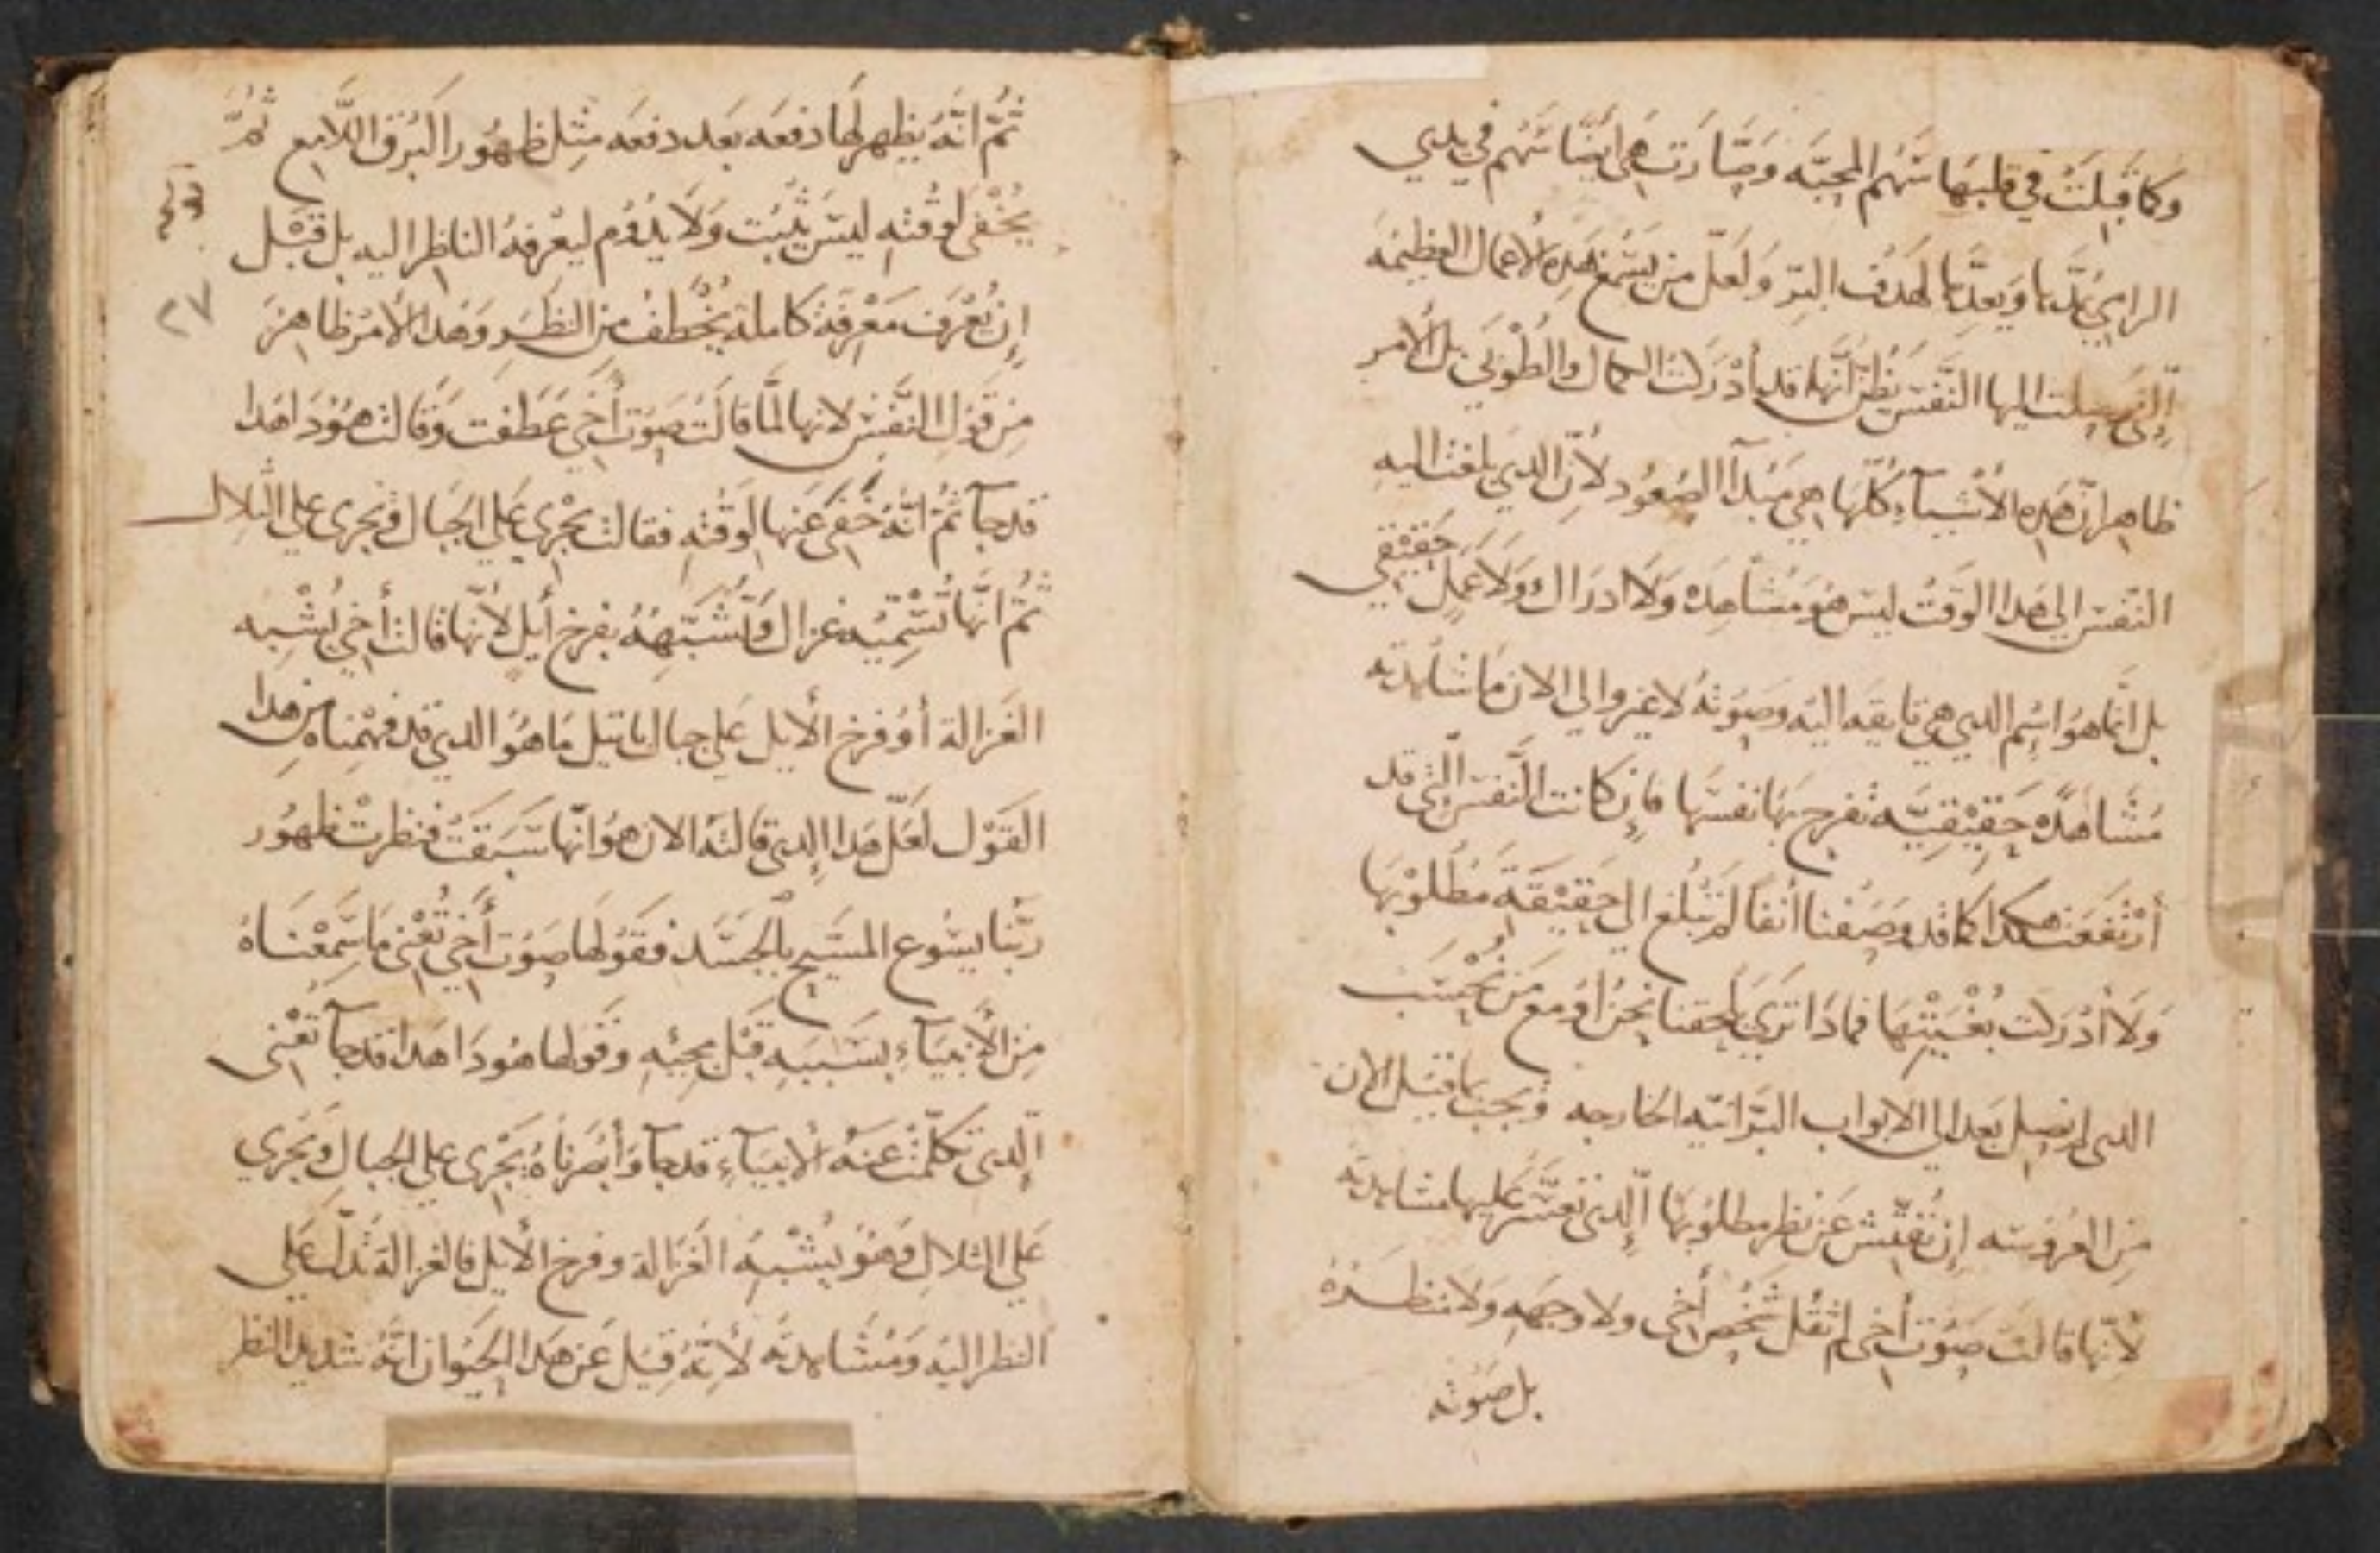 وكما قبلت في قلبها سَهم المحبّه وَصَارت هى ايضًا سَهم في يدي
الرامي يمدّها ويعدّها لهدف البرّ ولعَلّ من يسَمع هَده الاعمال العظيمَه
إلتى وصلت اليها النَّفسَ يَظنّ أنّها قد أدْركت الكمال والطُوبَي بل الأمر
ظاهر انّ هَده الأشيآء كُلّها هي مَبدآ الصُعُود لأنّ الدي بلغت اليه
النّفسَ الي هَدا الوَقتُ ليسَ هوَ مُشاهِدَه وَلَا ادراك وَلَا عَمل حَقيَقي
بل انّما هوَ اسِم الدي هي تايقَه اليَه وصَوتهُ لا غير والى الان مَا شاهدته
مُشَاهَدَه حَقيْقِيّه تفرح بهَا نفسَها فإن كانت النَّفسَ الّتى قد
أرْتفَعَت هكدا كما قد وصَفنا أنفًا لم تَبلُغ الي حَقِيْقَةَ مَطْلُوبْهَا
وَلَا أدْرَكت بُغْيَتهَا فماذَا تَرَي يلحقنا نحنُ أوَ مع مَن نُحْسَب
الدى لم نصِل بَعد الي الابواب البَرّانيّه الخارجه وَيجبَ بما قيَل الان
مِن العَروسَه إن نُفتّش عَن نظر مطلُوبَها إلّدى تعَسَّر عَليها مشاهدته
لأنّها قالَت صَوت أخى لم تقُل شَخْص أخى ولا وجهه ولا منظَرهُ
بل صَوته
ثُمّ انّهُ يظهر لهَا دفعَه بعَد دفعَه مثِل ظهُور البَرق اللّامع ثُمّ
يُخْفَى لوقته ليسَ يَثبُت وَلَا يدُوم ليعْرفهُ الناظِر اليه بل قَبْل
٢٧
إن يُعْرَف مَعْرفَة كاملة يُخْطف من النظَر وَهَدا الأمر ظاهر
مِن قَول النّفسْ لانها لمَّا قالت صَوت أخى عَطَفت وَقالت هوَدَا هَدا
قد جآ ثُمّ انّهُ خَفَى عَنها لوَقته فقالت يجْري عَلى الجبَال وَيجرى على التلال
ثُمّ انّها تُسَمّيَه غزال وَتُشَبّههُ بفرخ أيل لأنّها قالت أخى يُشْبه
الغَزالة أوْ فرخ الأيل عَلي جبال باتيل مَا هوَ الدي قد فهمَناه مِن هدا
القَوْل لَعَلّ هَدا إلدى قالته الان هوَ انّها سَبَقَتْ فنظرت ظهُور
ربّنا يسُوع المسَيح بالجسَد فقَولها صَوت أخى تُعْنى مَا سَمِعْنَاهُ
مِن الأنبيآء بسَببه قَبْل مجيْئه وقَولها هودَا هَدا قد جآ تعْنى
إلّدى تكلّمت عَنهُ الأنبيآء قد جآ وأبصَرناهُ يجْرى على الجبال وَيجري
عَلى التلال وَهوَ يُشْبه الغَزالة وفرخ الأيل فالغزالة تدُلّ عَلى
النظر اليَه وَمُشَاهدته لأنّهُ قيَل عَن هَدا الحيَوان انّهُ شديد النظر